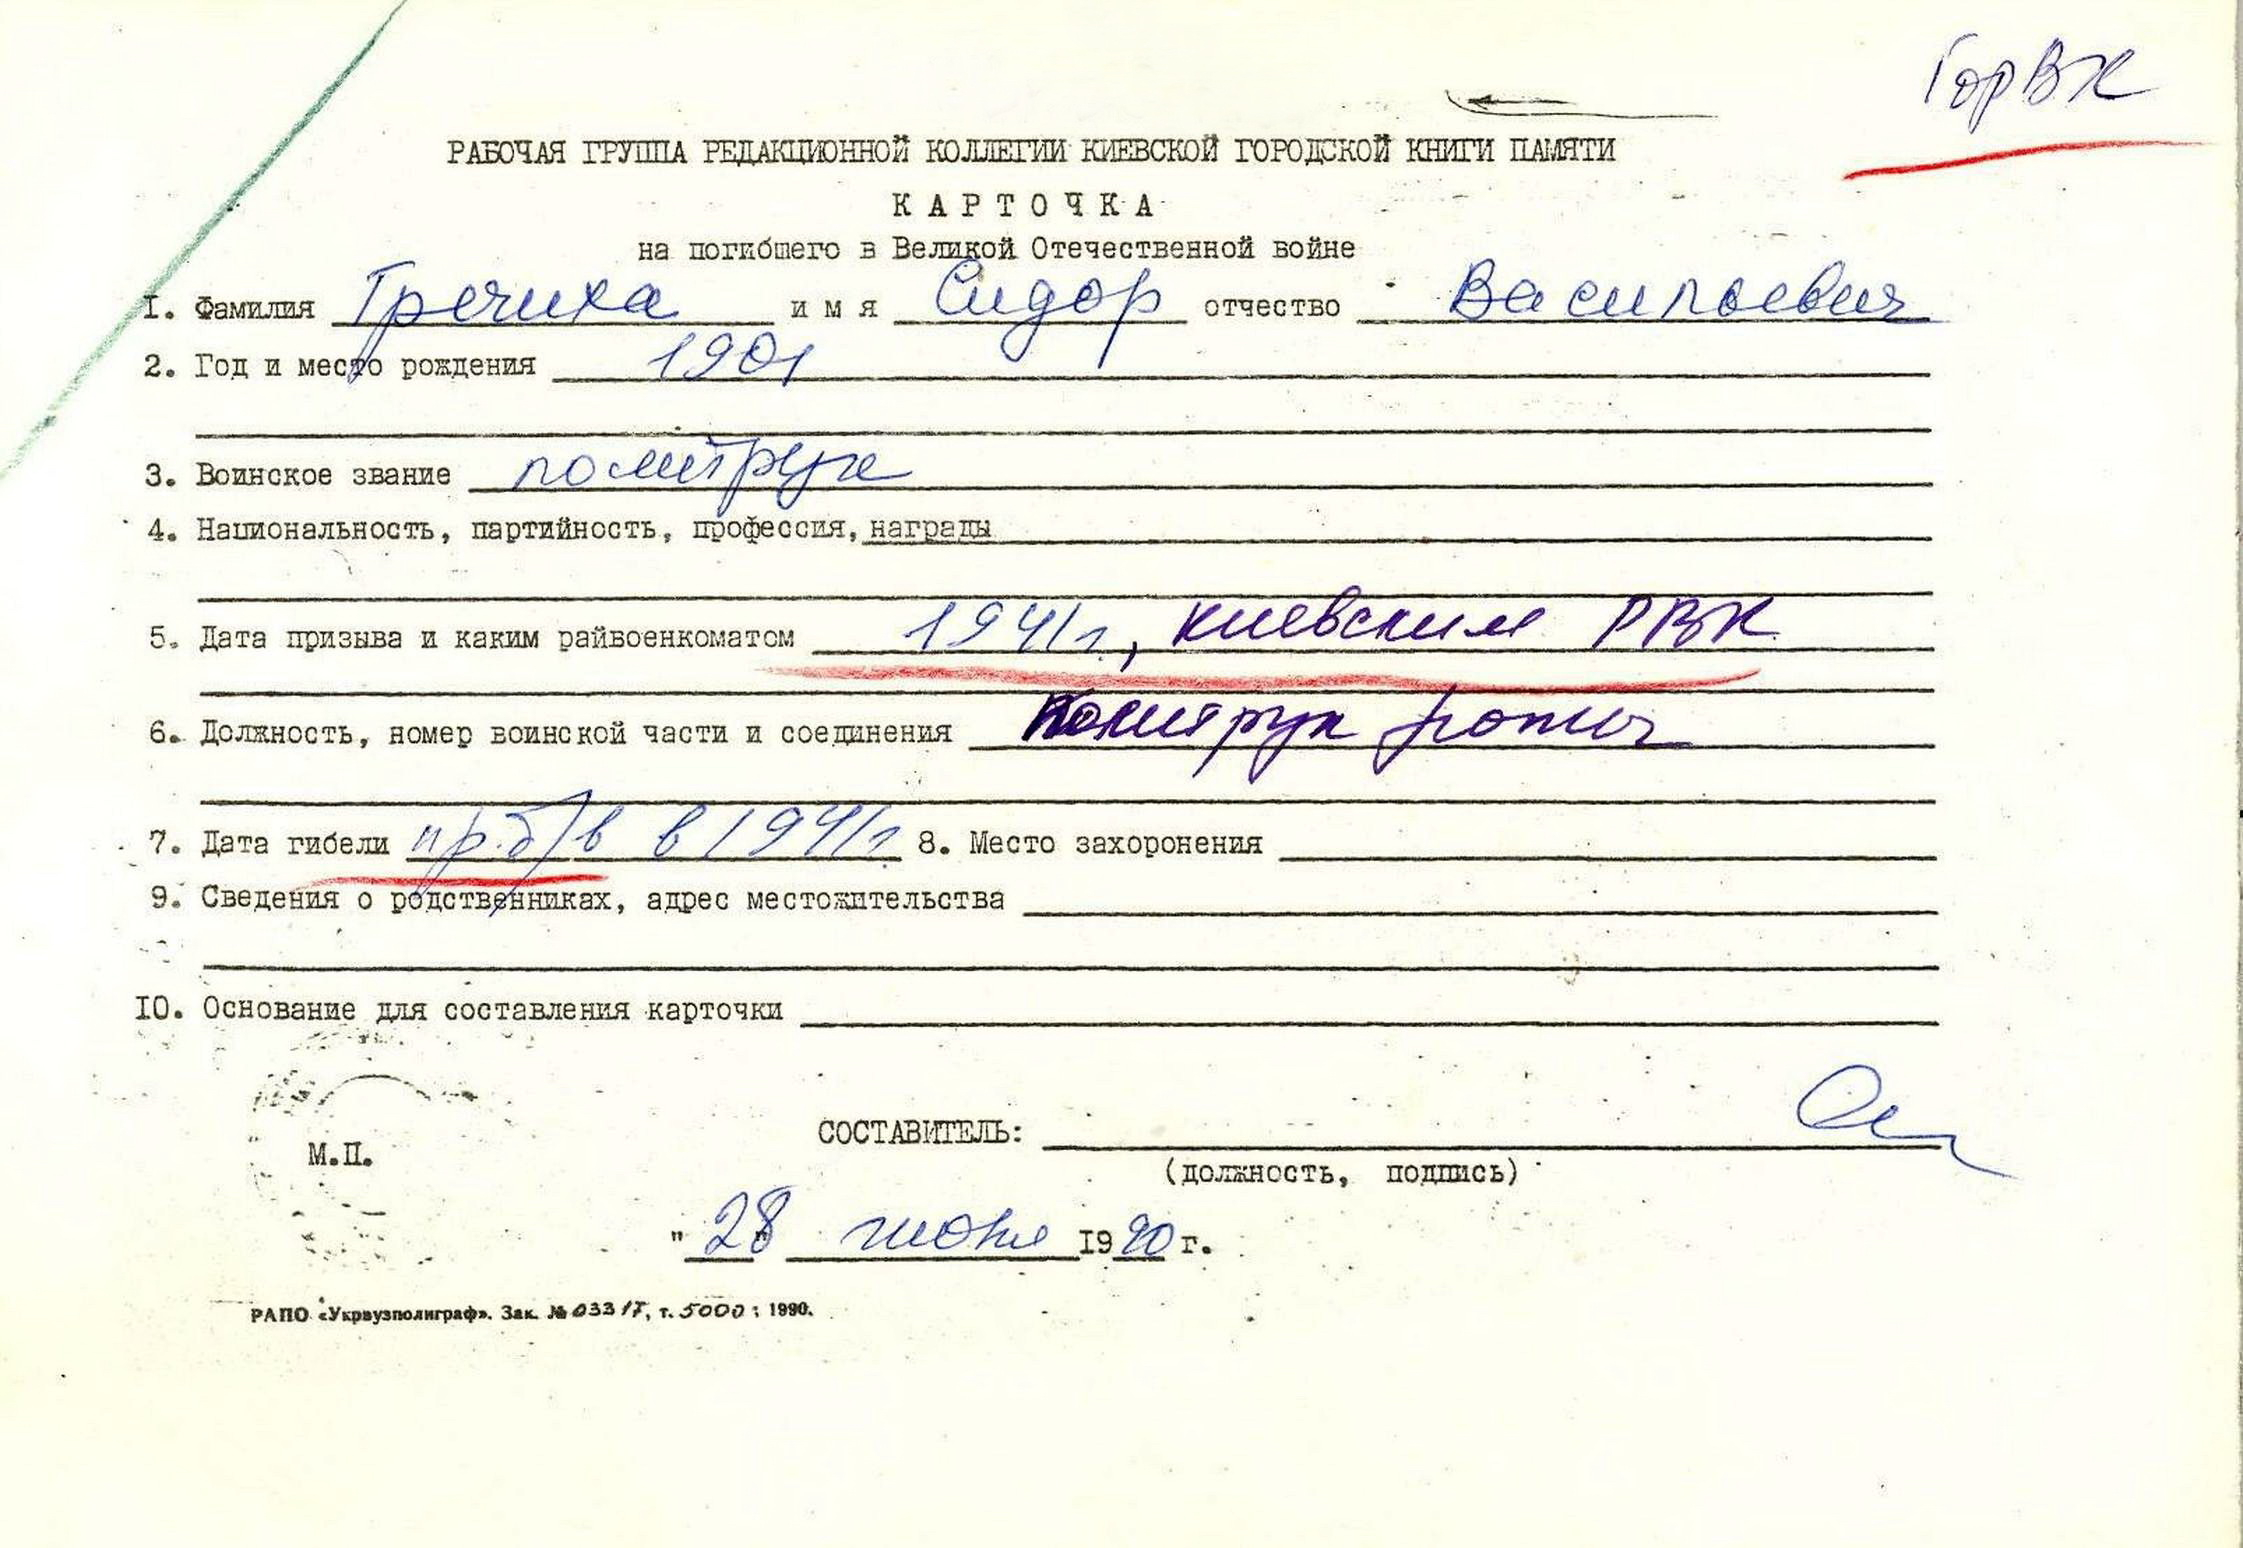 ГорВК
РАБОЧАЯ ГРУППА РЕДАКЦИОННОЙ КОЛЛЕГИИ КИЕВСКОЙ ГОРОДСКОЙ КНИГИ ПАМЯТИ
КАРТОЧКА
на погибшего в Великой Отечественной войне
1. Фамилия Гречиха имя Сидор отчество Васильевич
2. Год и место рождения 1901
3. Воинское звание политрук
4. Национальность, партийность, профессия, награды
5. Дата призыва и каким райвоенкоматом 1941г., Киевским РВК
6. Должность, номер воинской части и соединения политрук роты
7. Дата гибели пр.б/в в 1941г 8. Место захоронения
9. Сведения о родственниках, адрес местожительства
10. Основание для составления карточки
СОСТАВИТЕЛЬ:
М.П.
(должность, подпись)
"28" июня 1990 г.
РАПО «Укрвузполиграф». Зак. № 03317, т. 5000; 1990.